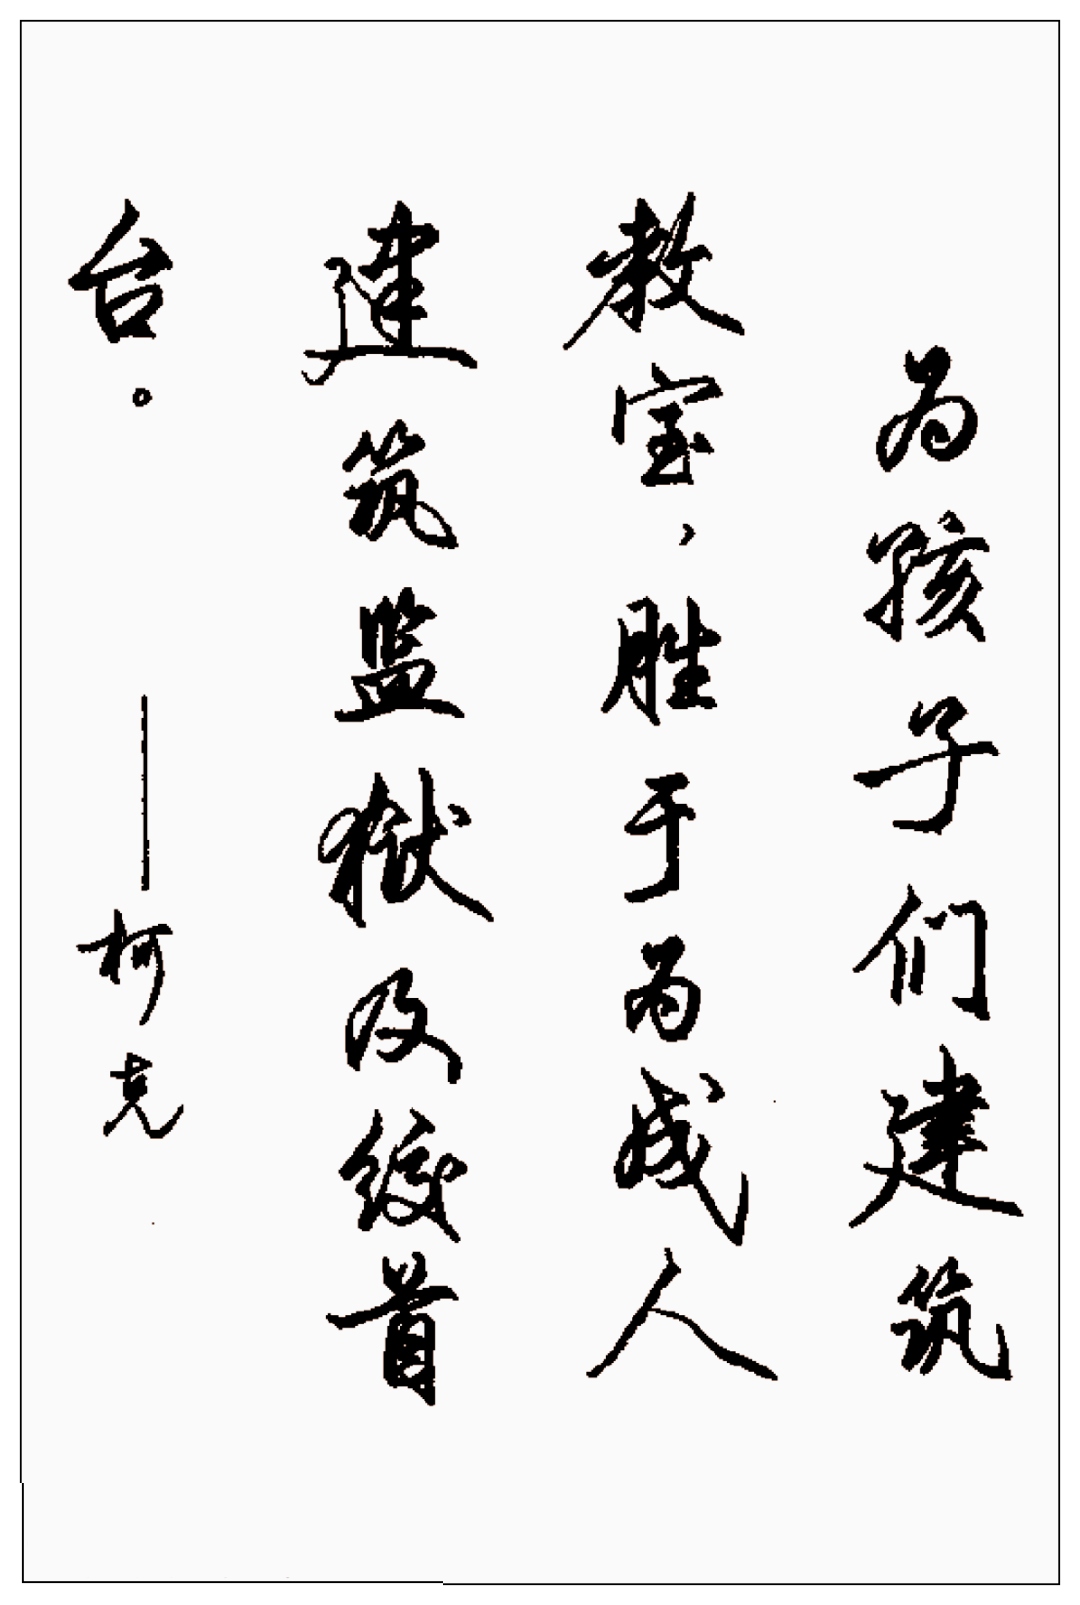 为孩子们建筑
教室，胜于为成人
建筑监狱及绞首
台。——柯克